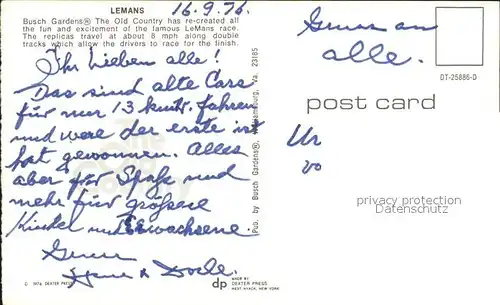 LEMANS
16.9.76.
Busch Gardens® The Old Country has re-created all
the fun and excitement of the famous LeMans race.
The replicas travel at about 8 mph along double
tracks which allow the drivers to race for the finish.
Ihr Lieben alle!
Das sind alte Cars
für nur 13 fahren
und were der erste ist
hat gewonnen. Alles
aber für Spaß und
mehr für größere
Kinder und Erwachsene.
Gruss
& 
Gruss an
alle.
DT-25886-D
post card
Pub. by Busch Gardens®, Williamsburg, Va. 23185
privacy protection
Datenschutz
© 1976 DEXTER PRESS
dp
MADE BY
DEXTER PRESS
WEST NYACK, NEW YORK